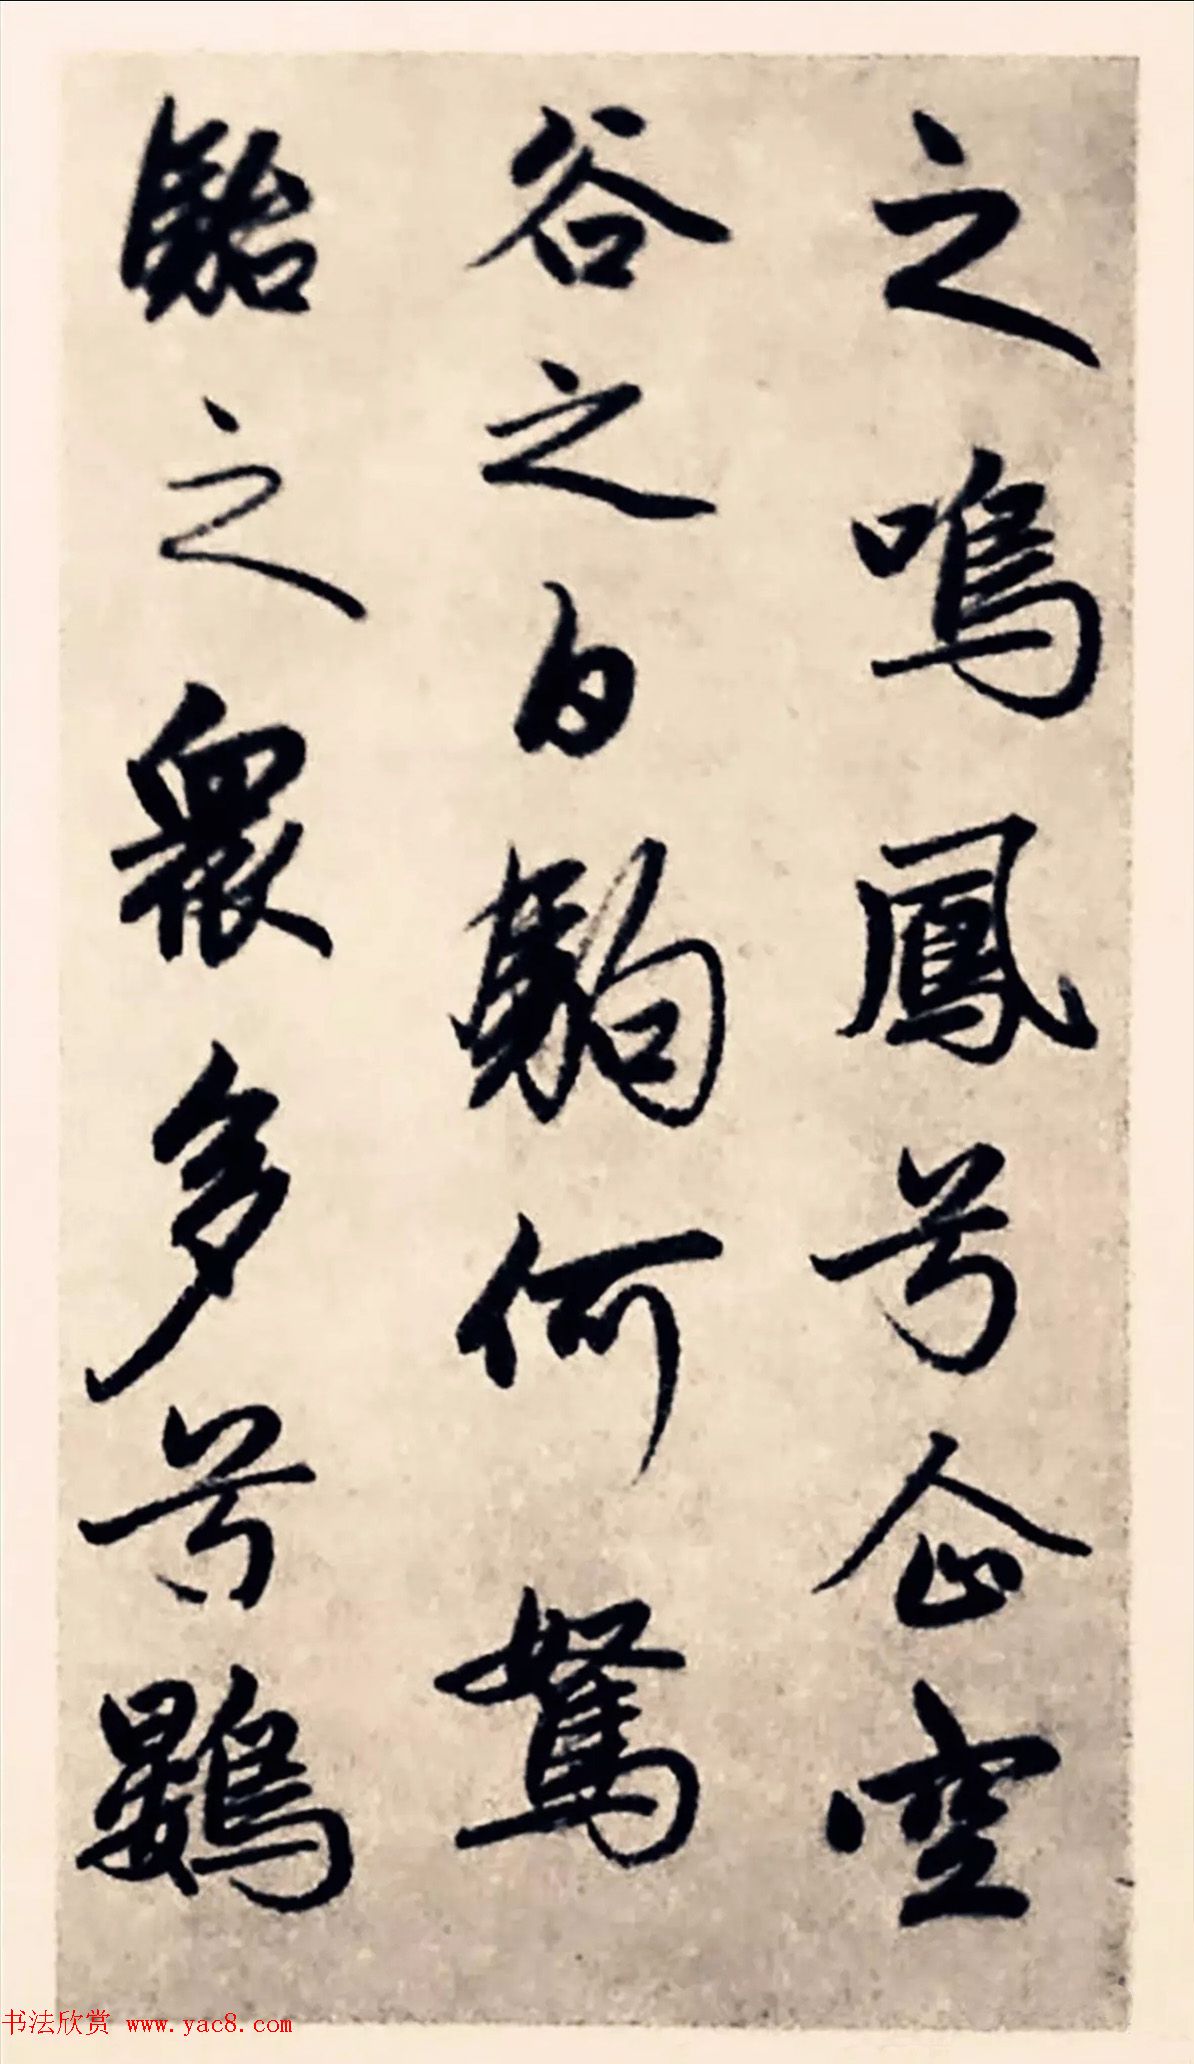 之鳴鳳兮企空
谷之白駒何駑
駘之衆多兮鸚
书法欣赏 www.yac8.com